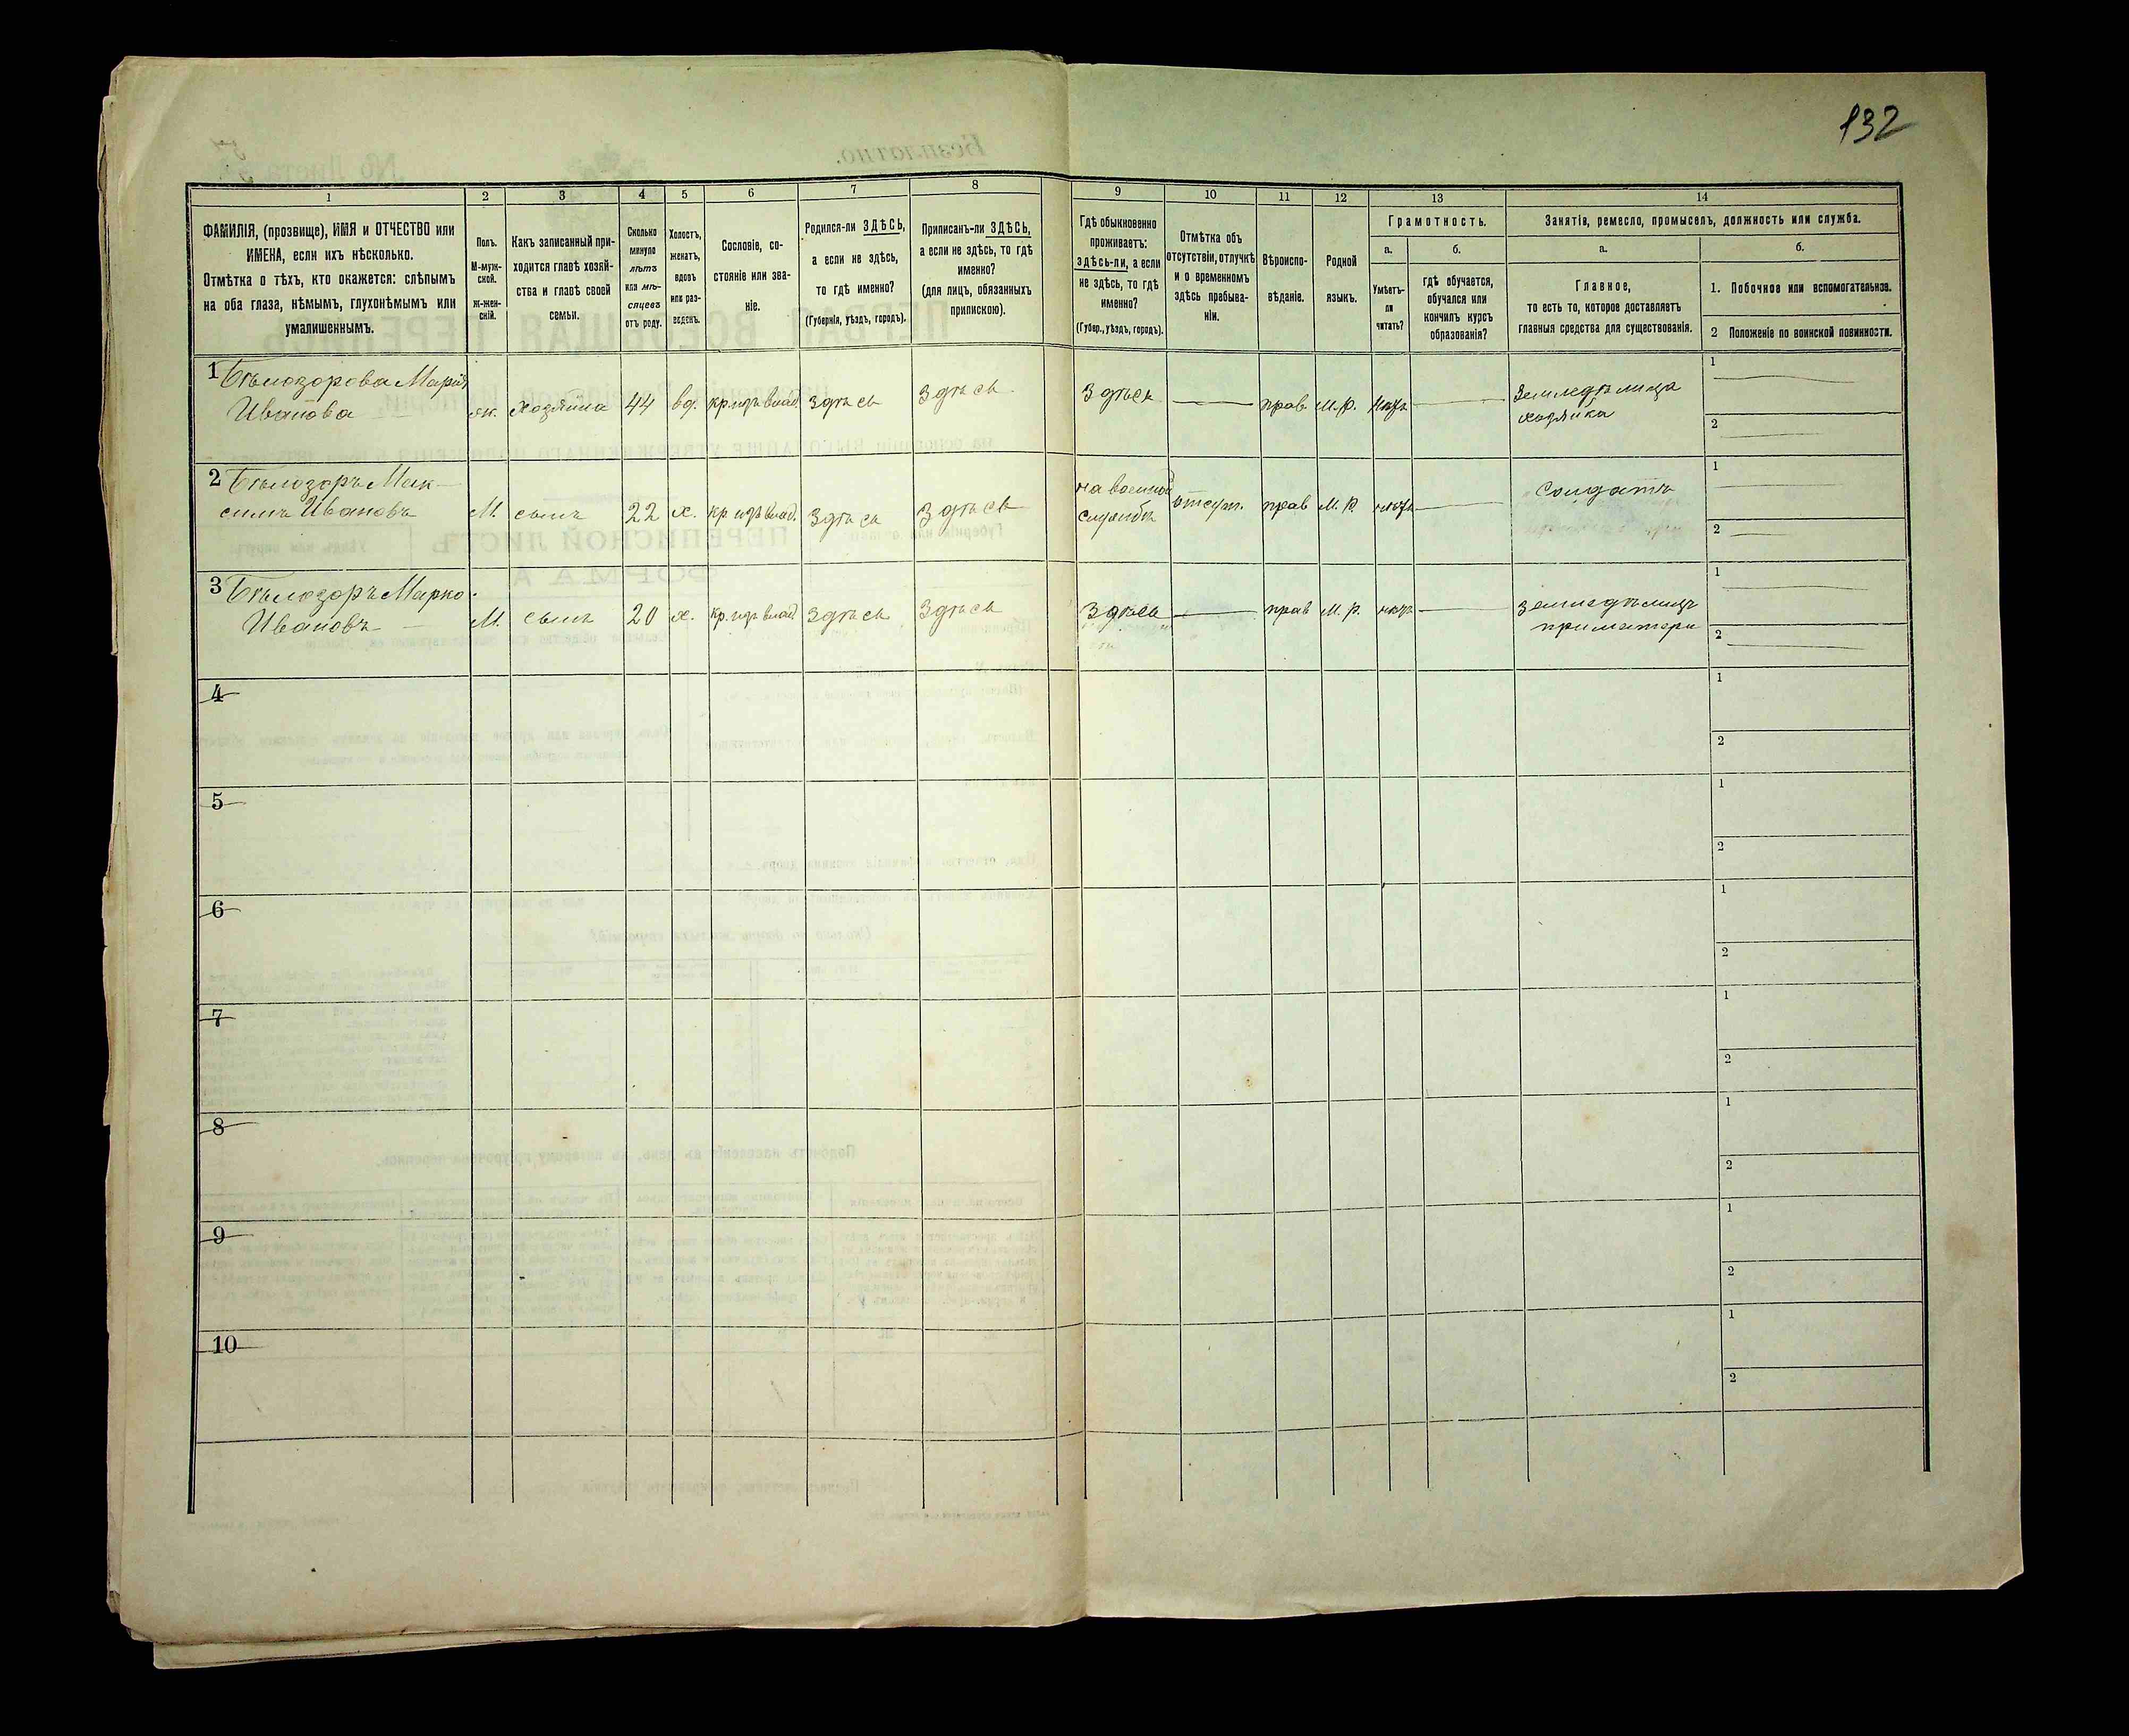 132
1
2
3
4
5
6
7
8
9
10
11
12
13
14
ФАМИЛІЯ, (прозвище), ИМЯ и ОТЧЕСТВО или
ИМЕНА, если ихъ нѣсколько.
Отмѣтка о тѣхъ, кто окажется: слѣпымъ
на оба глаза, нѣмымъ, глухонѣмымъ или
умалишеннымъ.
Полъ.
М-муж-
ской.
ж-жен-
скій.
Какъ записанный при-
ходится главѣ хозяй-
ства и главѣ своей
семьи.
Сколько
минуло
лѣтъ
или мѣ-
сяцевъ
отъ роду.
Холостъ,
женатъ,
вдовъ
или раз-
веденъ.
Сословіе, со-
стояніе или зва-
ніе.
Родился-ли ЗДѢСЬ,
а если не здѣсь,
то гдѣ именно?
(Губернія, уѣздъ, городъ).
Приписанъ-ли ЗДѢСЬ,
а если не здѣсь, то гдѣ
именно?
(для лицъ, обязанныхъ
припискою).
Гдѣ обыкновенно
проживаетъ:
здѣсь-ли, а если
не здѣсь, то гдѣ
именно?
(Губер., уѣздъ, городъ).
Отмѣтка объ
отсутствіи, отлучкѣ
и о временномъ
здѣсь пребыва-
ніи.
Вѣроиспо-
вѣданіе.
Родной
языкъ.
Грамотность.
а.
б.
Умѣетъ-
ли
читать?
гдѣ обучается,
обучался или
кончилъ курсъ
образованія?
Занятія, ремесло, промыселъ, должность или служба.
а.
б.
Главное,
то есть то, которое доставляетъ
главныя средства для существованія.
1. Побочное или вспомогательное.
2 Положеніе по воинской повинности.
1 Бѣлозорова Марія
Иванова
ж.
хозяйка
44
вд.
кр. изъ влад.
здѣсь
здѣсь
здѣсь
прав.
М. р.
нѣтъ
Земледѣлица
хозяйка
1
2
2 Бѣлозоръ Мак-
симъ Ивановъ
М.
сынъ
22
х.
кр. изъ влад.
здѣсь
здѣсь
на военной
службѣ
отсут.
прав
М. р.
нѣтъ
Солдатъ
1
2
3 Бѣлозоръ Марко
Ивановъ
М.
сынъ
20
х.
кр. изъ влад
здѣсь
здѣсь
здѣсь
прав
М. р.
нѣтъ
земледѣлецъ
при матери
1
2
4
1
2
5
1
2
6
1
2
7
1
2
8
1
2
9
1
2
10
1
2